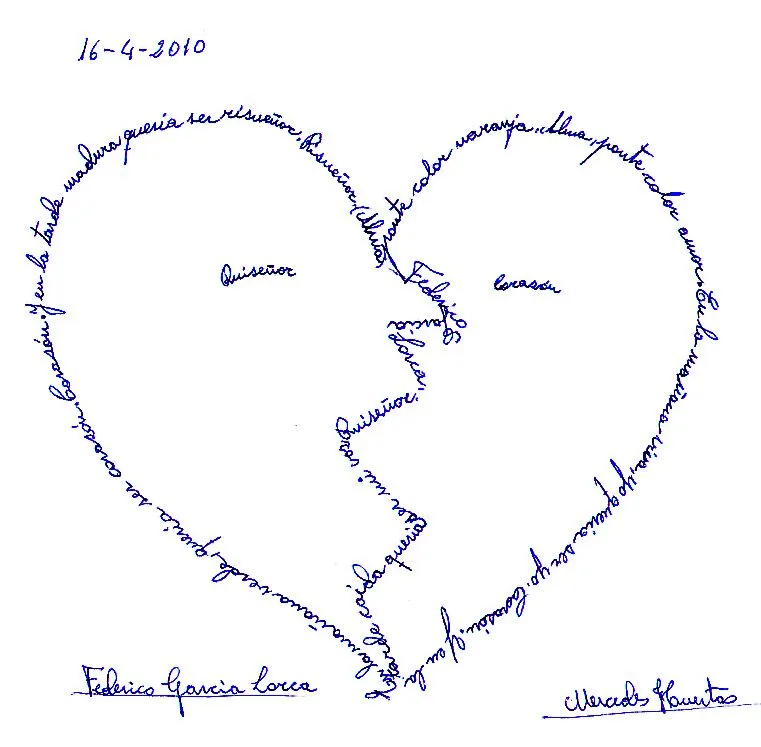 16-4-2010
En la mañana verde, quería ser corasón. Corasón. Y en la tarde madura quería ser risueñor. Risueñor. (Alma, ponte color naranja. Alma, ponte color amor. En la mañana viva, yo quería ser yo. Corasón. Y en la
tarde caída quería
ser mi voz.
Ruiseñor.
Federico
García
Lorca.
Ruiseñor
Corasón
Federico García Lorca
Mercedes Huertas